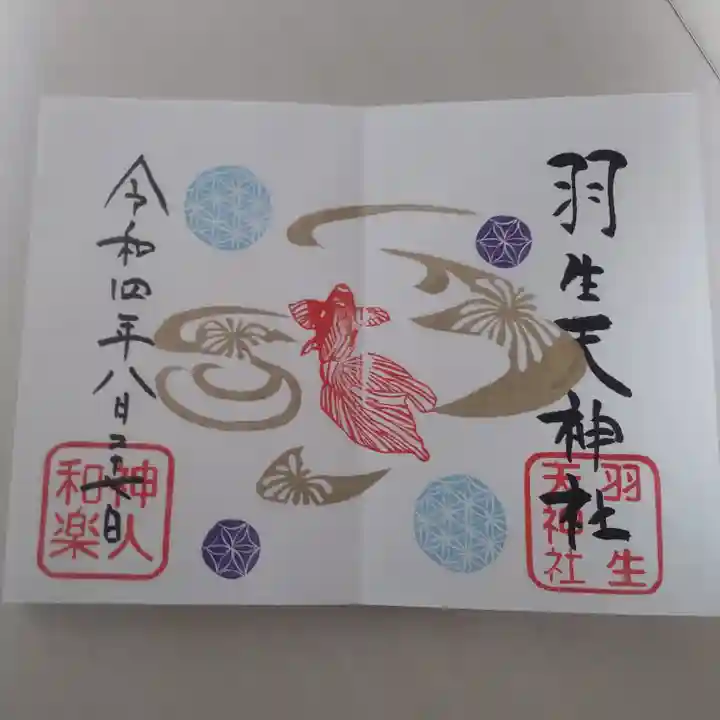 羽生天神社
羽生
天神社
令和四年八月二十八日
神人
和楽